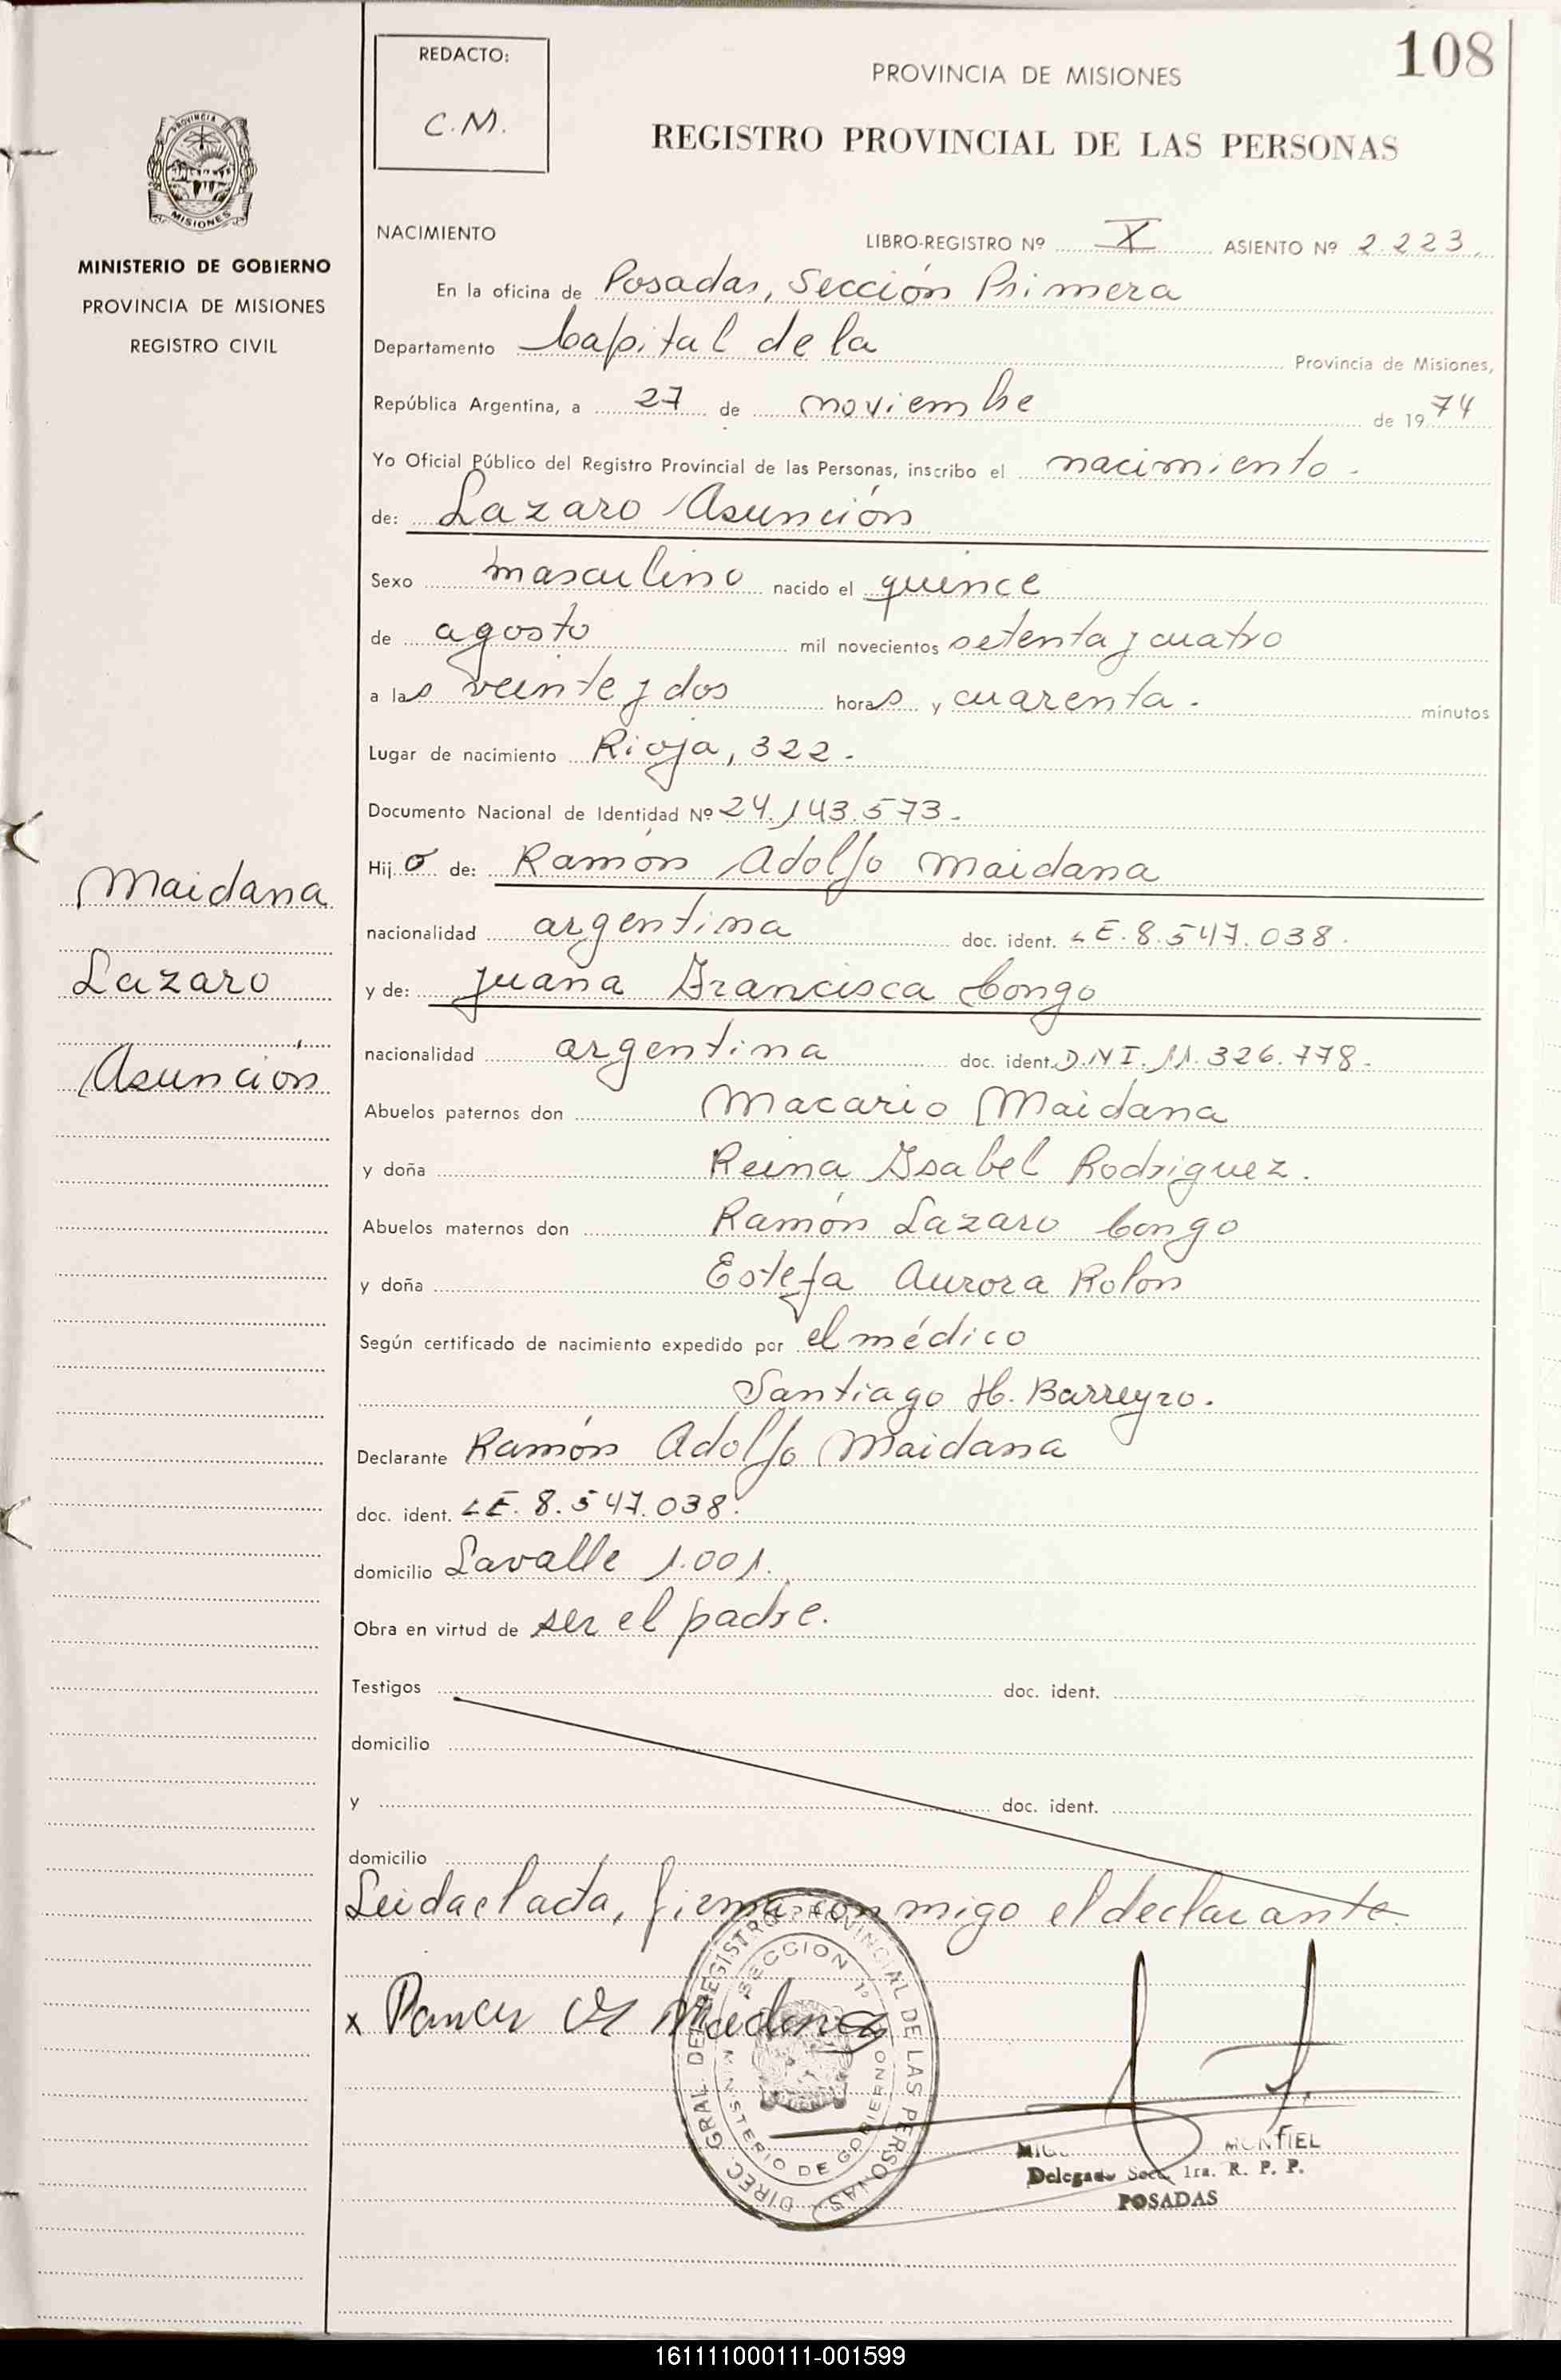 108
REDACTO:
C.M.
PROVINCIA DE MISIONES
REGISTRO PROVINCIAL DE LAS PERSONAS
PROVINCIA DE
MISIONES
MINISTERIO DE GOBIERNO
PROVINCIA DE MISIONES
REGISTRO CIVIL
NACIMIENTO LIBRO-REGISTRO Nº X ASIENTO Nº 2.223.
En la oficina de Posadas, Sección Primera
Departamento Capital de la Provincia de Misiones,
República Argentina, a 27 de noviembre de 1974
Yo Oficial Público del Registro Provincial de las Personas, inscribo el nacimiento.
de: Lazaro Asunción
Sexo masculino nacido el quince
de agosto mil novecientos setenta y cuatro
a las veinte y dos horas y cuarenta. minutos
Lugar de nacimiento Rioja, 322.
Documento Nacional de Identidad Nº 24.143.573.
Hijo de: Ramón Adolfo Maidana
nacionalidad argentina doc. ident. LE. 8.547.038.
y de: Juana Francisca Congo
nacionalidad argentina doc. ident. D.N I. 11.326.778.
Abuelos paternos don Macario Maidana
y doña Reina Isabel Rodriguez.
Abuelos maternos don Ramón Lazaro Congo
y doña Estefa Aurora Rolon
Según certificado de nacimiento expedido por el médico
Santiago H. Barreyro.
Declarante Ramón Adolfo Maidana
doc. ident. LE. 8.547.038.
domicilio Lavalle 1.001.
Obra en virtud de ser el padre.
Testigos doc. ident.
domicilio
y doc. ident.
domicilio
Leida el acta, firma con migo el declarante.
Maidana
Lazaro
Asunción
x
DIREC. GRAL. DEL REGISTRO PROVINCIAL DE LAS PERSONAS
SECCION 1º
MINISTERIO DE GOBIERNO
Delegado Secc. 1ra. R. P. P.
POSADAS
161111000111-001599